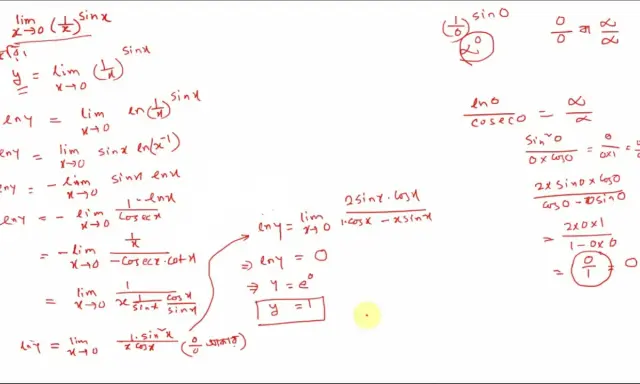 lim x→0 (1/x)^sinx
y = lim x→0 (1/x)^sinx
lny = lim x→0 ln(1/x)^sinx
lny = lim x→0 sinx ln(x⁻¹)
lny = -lim x→0 sinx lnx
lny = - lim x→0 1·lnx/cosecx
= -lim x→0 (1/x)/(-cosecx·cotx)
= lim x→0 1/(x 1/sinx cosx/sinx)
lny = lim x→0 1·sin²x/(x cosx) (0/0 আকার)
lny = lim x→0 2sinx·cosx/(1·cosx - xsinx)
⇒ lny = 0
⇒ y = e⁰
y = 1
(1/0)^sin0
∝⁰
0/0 বা ∝/∝
ln0/cosec0 = ∝/∝
sin²0/(0×cos0) = 0/(0×1) = 0
2×sin0×cos0/(cos0 - 0sin0)
= 2×0×1/(1-0×0)
= 0/1 = 0